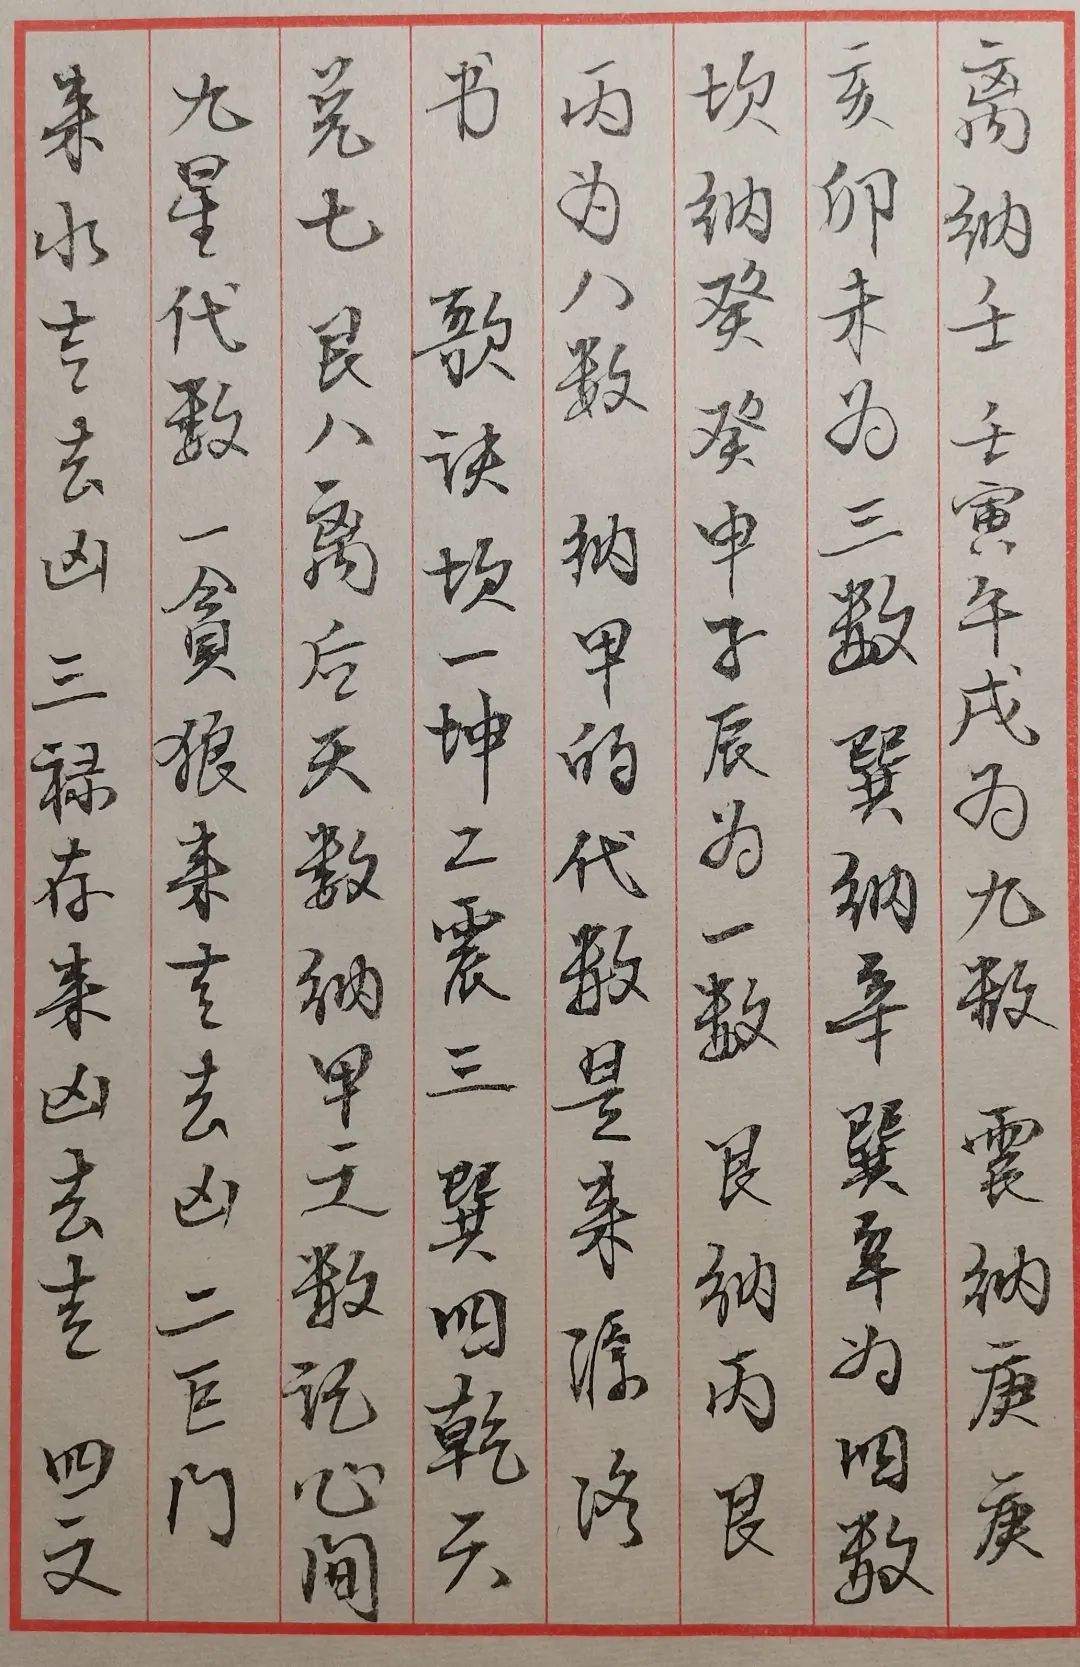 离纳壬 壬寅午戌为九数 震纳庚庚
亥卯未为三数 巽纳辛 巽辛为四数
坎纳癸 癸申子辰为一数 艮纳丙艮
丙为八数 纳甲的代数是来源洛
书 歌诀坎一坤二震三 巽四乾六
兑七 艮八离后天数纳甲之数记心间
九星代数 一贪狼来吉去凶 二巨门
来水吉去凶 三禄存来凶去吉 四文